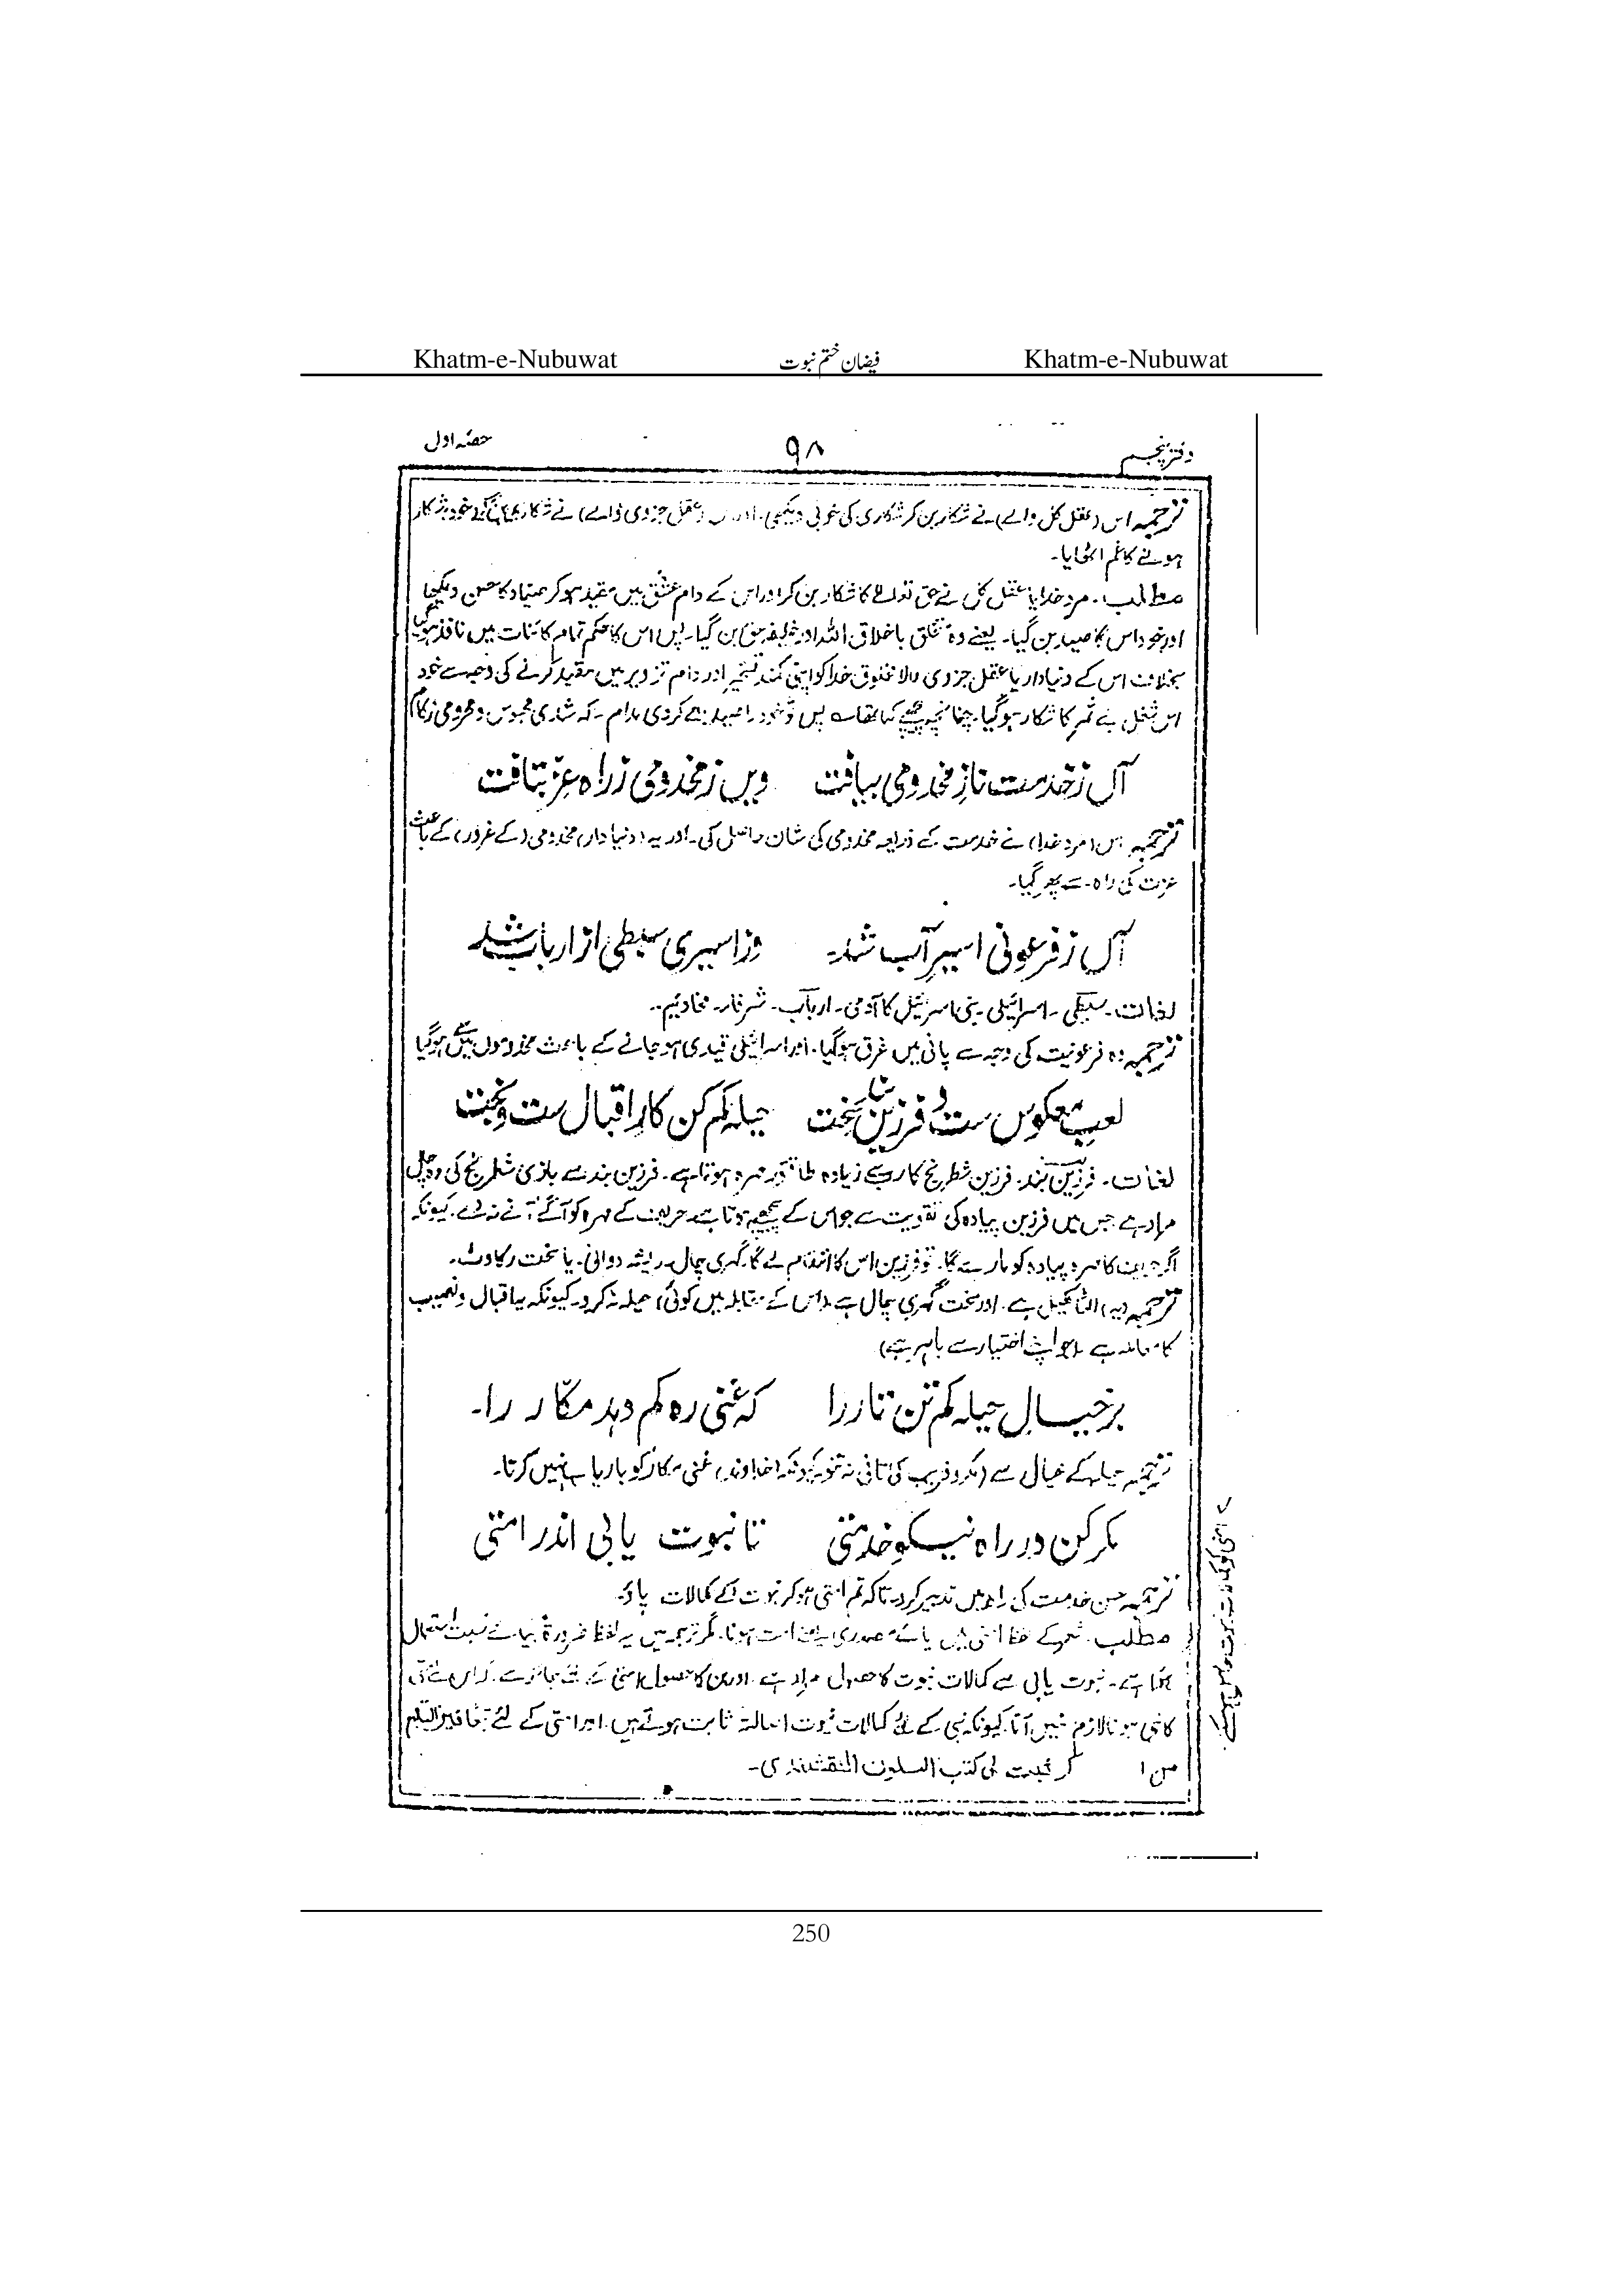 Khatm-e-Nubuwat فیضان ختم نبوت Khatm-e-Nubuwat
دفتر پنجم ۹۸ حصّہ اول
ترجمہ اس (عقل کل والے) نے شکار بن کر شکاری کی خوبی دیکھی۔ (عقل جزوی والے) نے خود شکار
ہونے کا غم اٹھایا۔
مطلب۔ مرد خدا یا عقل کل نے حق تعالےٰ کا شکار بن کر اور اس کے دام عشق میں مقید ہو کر صیّاد کا حسن دیکھا
اور خود اس کا صید بن گیا۔ یعنے وہ متخلق باخلاق اللہ اور خلیفہ حق بن گیا۔ پس اس کا حکم تمام کائنات میں نافذ ہوگیا
بخلاف اس کے دنیادار یا عقل جزوی والا مخلوق خدا کو اپنی کمند تسخیر اور دام تزویر میں مقید کرنے کی وجہ سے خود
اس شغل بے ثمر کا شکار ہوگیا۔ چنانچہ پیچھے کہا تھا پس تو خود را صید کردی بدام۔ کہ شدی محبوس و محرومی زکام
آں ز خدمت ناز مخدومی بیافت ویں ز مخدومی ز راہ عزّ بتافت
ترجمہ اس (مرد خدا) نے خدمت کے ذریعہ مخدومی کی شان حاصل کی۔ اور یہ (دنیا دار) مخدومی (کے غرور) کے باعث
عزت کی راہ سے پھر گیا۔
آں ز فرعونی اسیرِ آب شد وز اسیری سبطی از ارباب شد
لغات۔ سبطی۔ اسرائیلی بنی اسرائیل کا آدمی۔ ارباب۔ شرفاء۔ مخادیم۔
ترجمہ وہ فرعونیت کی وجہ سے پانی میں غرق ہوگیا۔ اور اسرائیلی قیدی ہو جانے کے باعث مخدوموں میں سے ہوگیا
لعب معکوس ست و فرزیں بند سخت حیلہ کم کن کارِ اقبال ست و بخت
لغات۔ فرزیں بند۔ فرزین شطرنج کا سب سے زیادہ طاقتور مہرہ ہوتا ہے۔ فرزین بند سے بازی شطرنج کی وہ چال
مراد ہے جس میں فرزین پیادہ کی تقویت سے جو اس کے پیچھے ہوتا ہے حریف کے مہرہ کو آگے آنے نہ دے۔ کیونکہ
اگر حریف کا مہرہ پیادہ کو مارے گا۔ تو فرزین اس کا انتقام لے گا۔ گہری چال۔ ریشہ دوانی۔ یا سخت رکاوٹ۔
ترجمہ (یہ) الٹا کھیل ہے۔ اور سخت گہری چال ہے (اس کے مقابلہ میں کوئی) حیلہ نہ کرو۔ کیونکہ یہ اقبال و نصیب
کا معاملہ ہے (جو اپنے اختیار سے باہر ہے)
بر خیالِ حیلہ کم تن تار را کہ غنی رہ کم دہد مکّار را۔
ترجمہ حیلہ کے خیال سے (مکر و فریب کی) تانی نہ تنو کیونکہ (خداوند) غنی مکار کو باریاب نہیں کرتا۔
مکر کن در راہ نیکو خدمتی تا نبوت یابی اندر امتی
ترجمہ حسن خدمت کی راہ میں تدبیر کرو۔ تاکہ تم امتی ہو کر نبوت کے کمالات پاؤ۔
مطلب۔ شعر کے لفظ امتی میں یائے مصدری ہونا۔ مگر ترجمہ میں یہ لفظ ضرورۃً یائے نسبت استعمال
ہوا ہے۔ نبوت یابی سے کمالات نبوت کا حصول مراد ہے۔ اور ان کا حصول امتی کے لئے جائز ہے۔
کا نبی ہونا لازم نہیں آتا۔ کیونکہ نبی کے لئے کمالات نبوت اصالۃً ثابت ہوتے ہیں۔ اور امتی کے لئے تبعاً
کے ثبت فی کتب النقشبندی۔
امتی کو کمالات نبوت حاصل
250